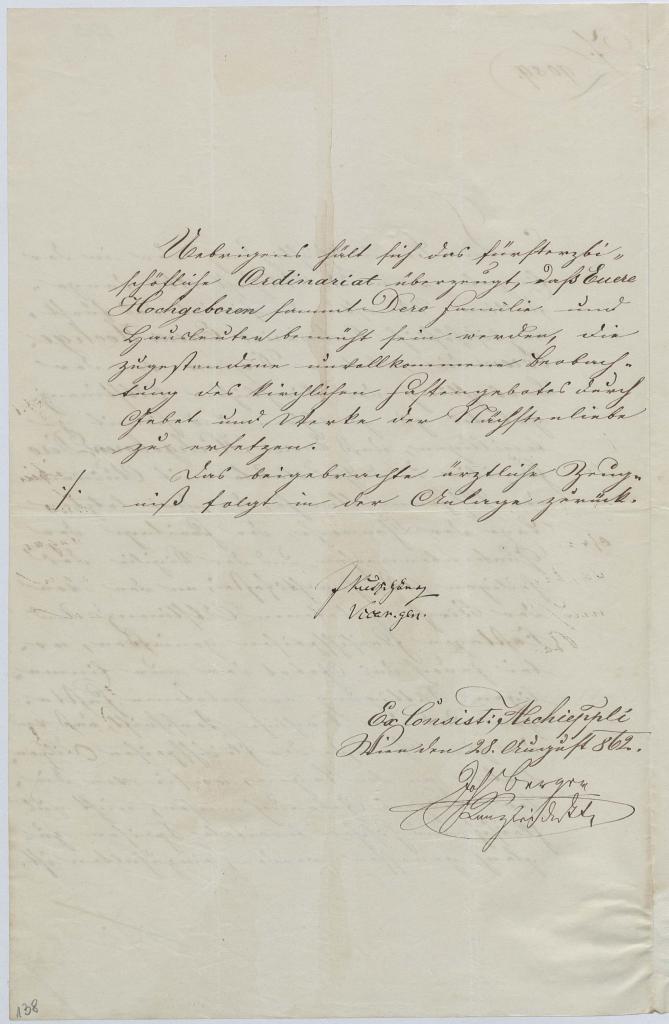 Uebrigens hält sich das fürsterzbi-
schöfliche Ordinariat überzeugt, daß Euere
Hochgeboren sammt Dero Familie und
Hausleuten bemüht sein werden, die
zugestandene unvollkommene Beobach-
tung des kirchlichen Fastengebotes durch
Gebet und Werke der Nächstenliebe
zu ersetzen.
Das beigebrachte ärztliche Zeug-
./. niß folgt in der Anlage zurück.
Kutschker
Vicar. gen.
Ex Consist: Archieppli
Wien den 28. August 862.
Berger
Kanzleidirkt.
138